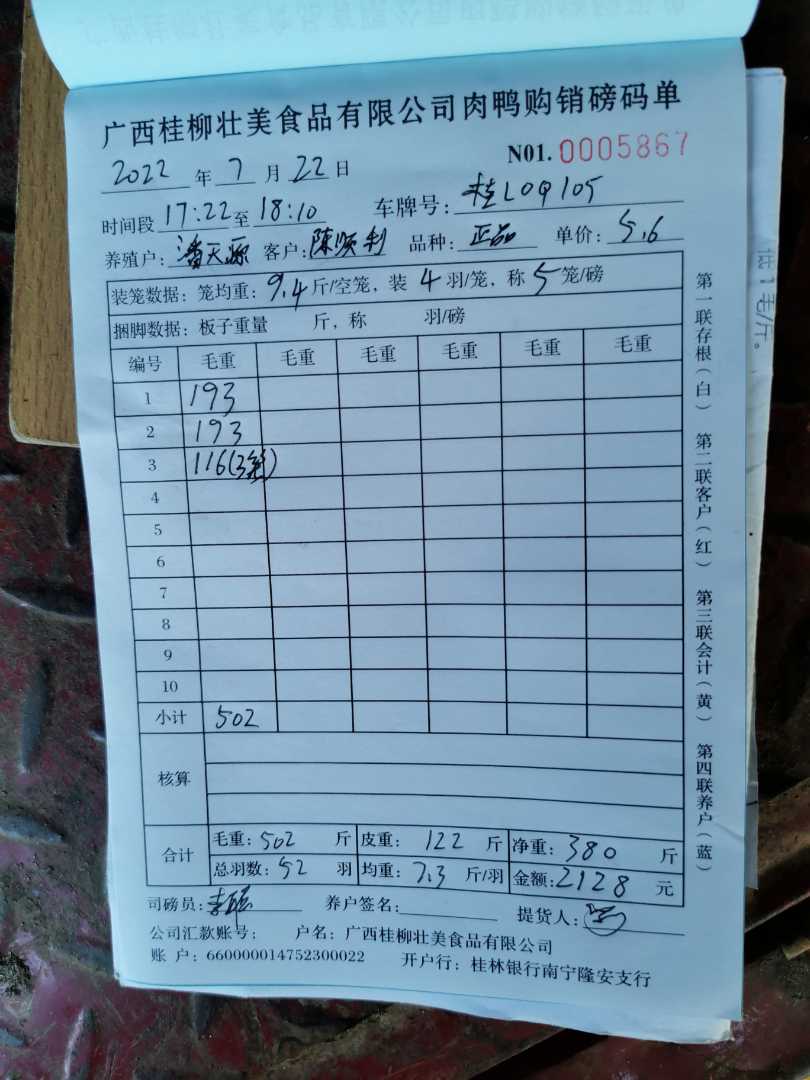 广西桂柳壮美食品有限公司肉鸭购销磅码单
2022 年 7 月 22 日 N01. 0005867
时间段 17:22 至 18:10 车牌号: 桂L0Q105
养殖户: 潘天源 客户: 陈顺利 品种: 正品 单价: 5.6
装笼数据: 笼均重: 9.4 斤/空笼, 装 4 羽/笼, 称 5 笼/磅
捆脚数据: 板子重量 斤, 称 羽/磅
编号 毛重 毛重 毛重 毛重 毛重 毛重
1 193
2 193
3 116(3笼)
4
5
6
7
8
9
10
小计 502
核算
合计 毛重: 502 斤 皮重: 122 斤 净重: 380 斤
总羽数: 52 羽 均重: 7.3 斤/羽 金额: 2128 元
司磅员: 养户签名: 提货人:
公司汇款账号: 户名: 广西桂柳壮美食品有限公司
账 户: 660000014752300022 开户行: 桂林银行南宁隆安支行
第一联存根(白) 第二联客户(红) 第三联会计(黄) 第四联养户(蓝)
1毛/斤。